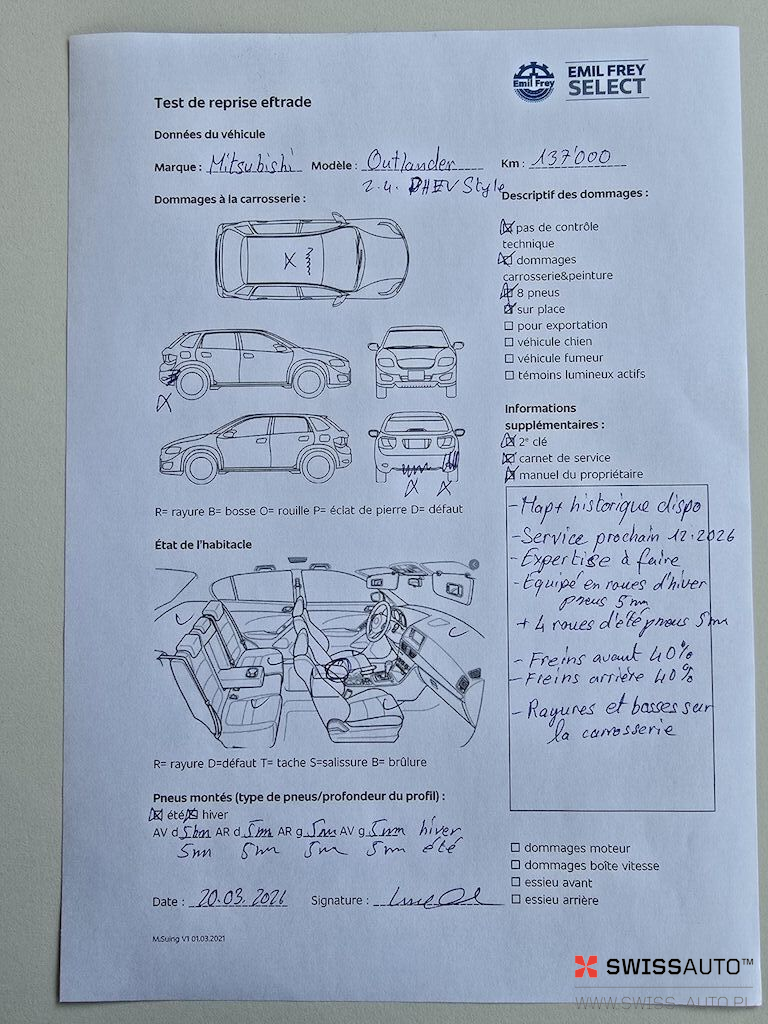 Emil Frey
EMIL FREY
SELECT
Test de reprise eftrade
Données du véhicule
Marque : Mitsubishi Modèle : Outlander Km : 137'000
2.4. PHEV Style
Dommages à la carrosserie :
Descriptif des dommages :
pas de contrôle
technique
dommages
carrosserie&peinture
8 pneus
sur place
pour exportation
véhicule chien
véhicule fumeur
témoins lumineux actifs
R= rayure B= bosse O= rouille P= éclat de pierre D= défaut
Informations
supplémentaires :
2e clé
carnet de service
manuel du propriétaire
- Map+ historique dispo
- Service prochain 12.2026
- Expertise à faire
- Equipé en roues d'hiver
pneus 5mm
+ 4 roues d'été pneus 5mm
- Freins avant 40%
- Freins arrière 40%
- Rayures et bosses sur
la carrosserie
État de l'habitacle
R= rayure D=défaut T= tache S=salissure B= brûlure
Pneus montés (type de pneus/profondeur du profil) :
été hiver
AV d 5mm AR d 5mm AR g 5mm AV g 5mm hiver
5mm 5mm 5mm 5mm été
dommages moteur
dommages boîte vitesse
essieu avant
essieu arrière
Date : 20.03.2026 Signature :
M.Suing V1 01.03.2021
SWISSAUTO™
WWW.SWISS-AUTO.PL